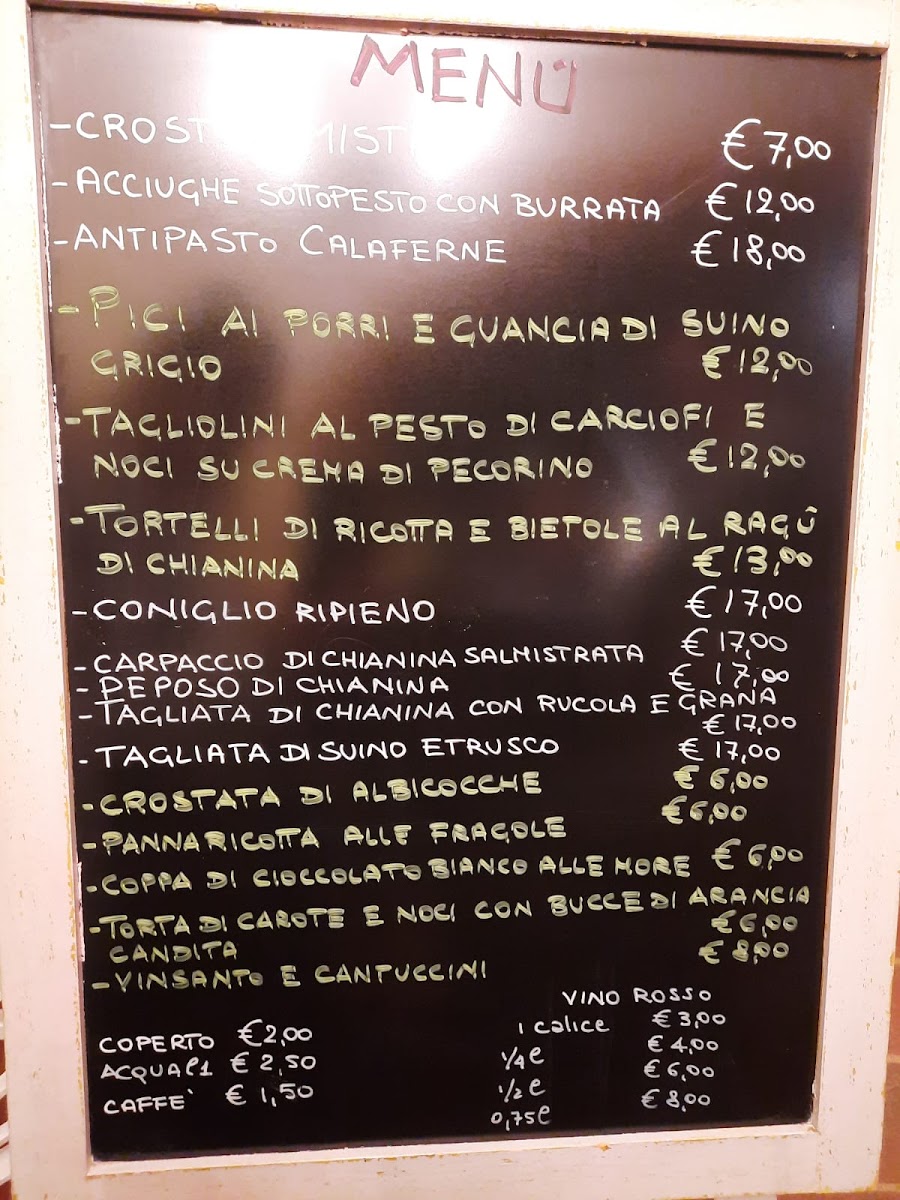 MENÙ
-CROST MIST € 7,00
-ACCIUGHE SOTTOPESTO CON BURRATA € 12,00
-ANTIPASTO CALAFERNE € 18,00
-PICI AI PORRI E GUANCIA DI SUINO
GRIGIO € 12,00
-TAGLIOLINI AL PESTO DI CARCIOFI E
NOCI SU CREMA DI PECORINO € 12,00
-TORTELLI DI RICOTTA E BIETOLE AL RAGÙ
DI CHIANINA € 13,00
-CONIGLIO RIPIENO € 17,00
-CARPACCIO DI CHIANINA SALMISTRATA € 17,00
-PEPOSO DI CHIANINA € 17,00
-TAGLIATA DI CHIANINA CON RUCOLA E GRANA
€ 17,00
-TAGLIATA DI SUINO ETRUSCO € 17,00
-CROSTATA DI ALBICOCCHE € 6,00
-PANNARICOTTA ALLE FRAGOLE € 6,00
-COPPA DI CIOCCOLATO BIANCO ALLE MORE € 6,00
-TORTA DI CAROTE E NOCI CON BUCCE DI ARANCIA
CANDITA € 6,00
-VINSANTO E CANTUCCINI € 8,00
VINO ROSSO
1 calice € 3,00
1/4 l € 4,00
1/2 l € 6,00
0,75 l € 8,00
COPERTO € 2,00
ACQUA l1 € 2,50
CAFFE' € 1,50